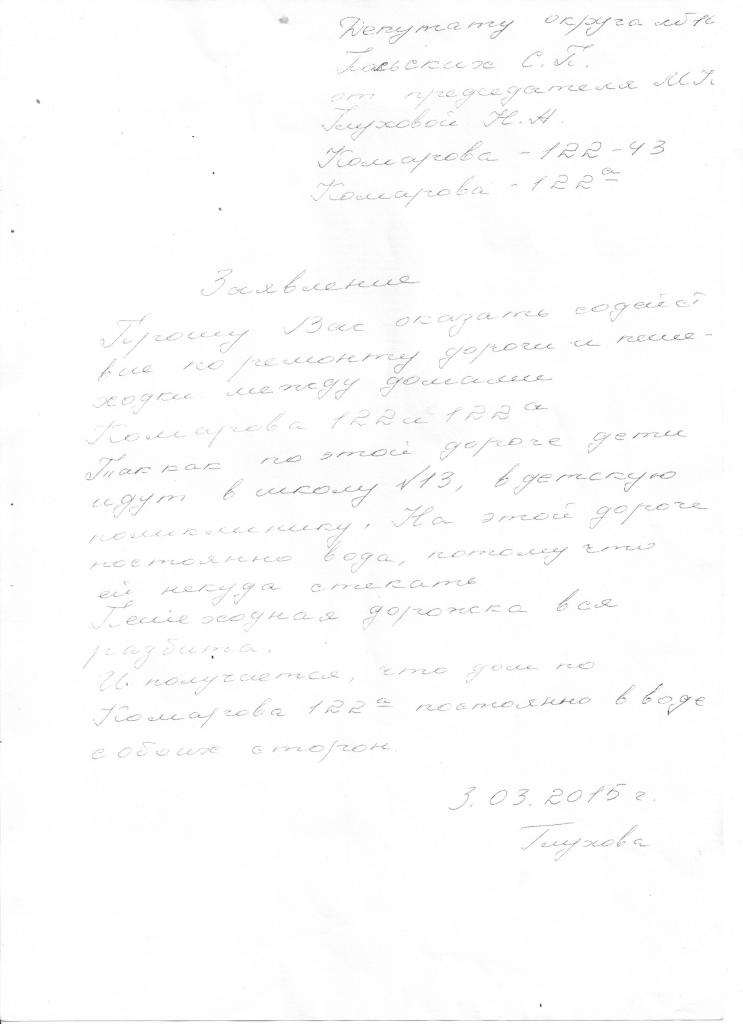 Депутату округа №16
Польских С.П.
от председателя МК
Глуховой Н.Н.
Комарова - 122 - 43
Комарова - 122а
Заявление
Прошу Вас оказать содейст
вие по ремонту дороги и пеше-
ходки между домами
Комарова 122 и 122а
Так как по этой дороге дети
идут в школу №13, в детскую
поликлинику. На этой дороге
постоянно вода, потому что
ей некуда стекать
Пешеходная дорожка вся
разбита.
И получается, что дом по
Комарова 122а постоянно в воде
с обоих сторон.
3.03.2015 г.
Глухова